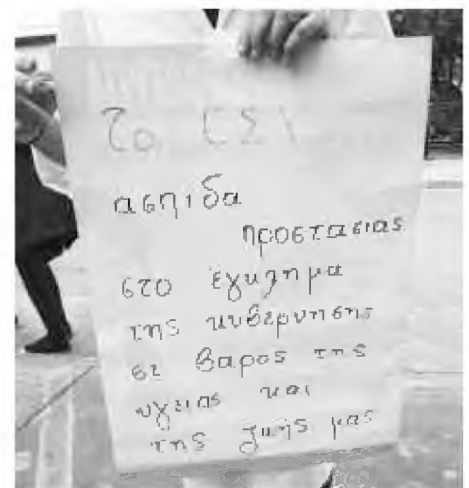 Το ΕΣΥ
ασπιδα
προστασιας
στο έγκλημα
της κυβερνησης
σε βαρος της
υγειας και
της ζωής μας